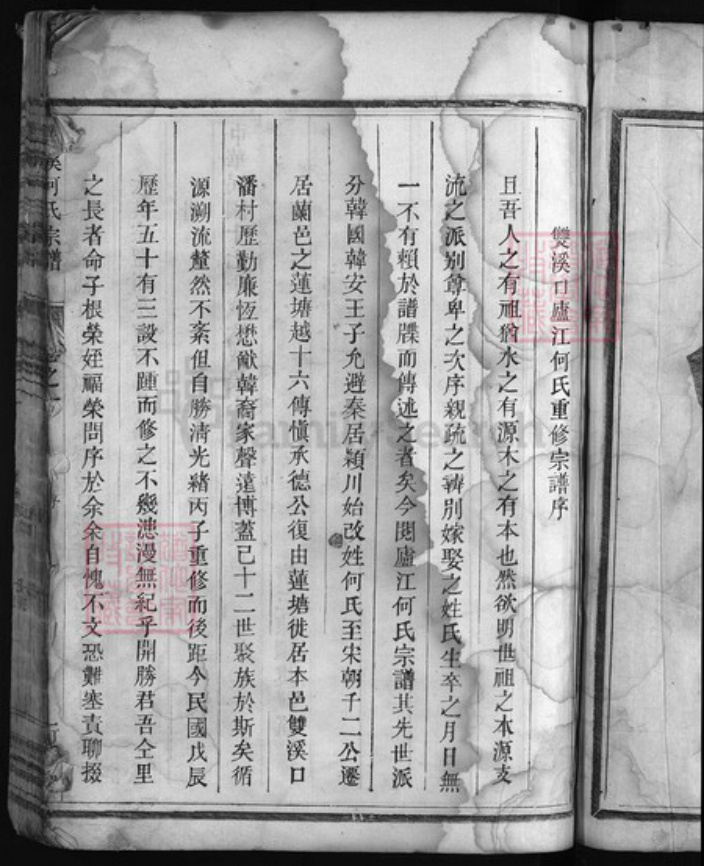 雙溪口廬江何氏重修宗譜序
且吾人之有祖猶水之有源木之有本也然欲明世祖之本源支
流之派别尊卑之次序親疏之辨別嫁娶之姓氏生卒之月日無
一不有賴於譜牒而傳述之者矣今閱廬江何氏宗譜其先世派
分韓國韓安王子允避秦居潁川始改姓何氏至宋朝千二公遷
居蘭邑之蓮塘越十六傳愼承德公復由蓮塘徙居本邑雙溪口
潘村歷勤廉恆懋猷韓裔家聲遠博蓋已十二世聚族於斯矣循
源溯流釐然不紊但自勝清光緒丙子重修而後距今民國戊辰
歷年五十有三設不踵而修之不幾漶漫無紀乎開勝君吾仝里
之長者命子根榮姪福榮問序於余余自愧不文恐難塞責聊掇
溪何氏宗譜
卷之一